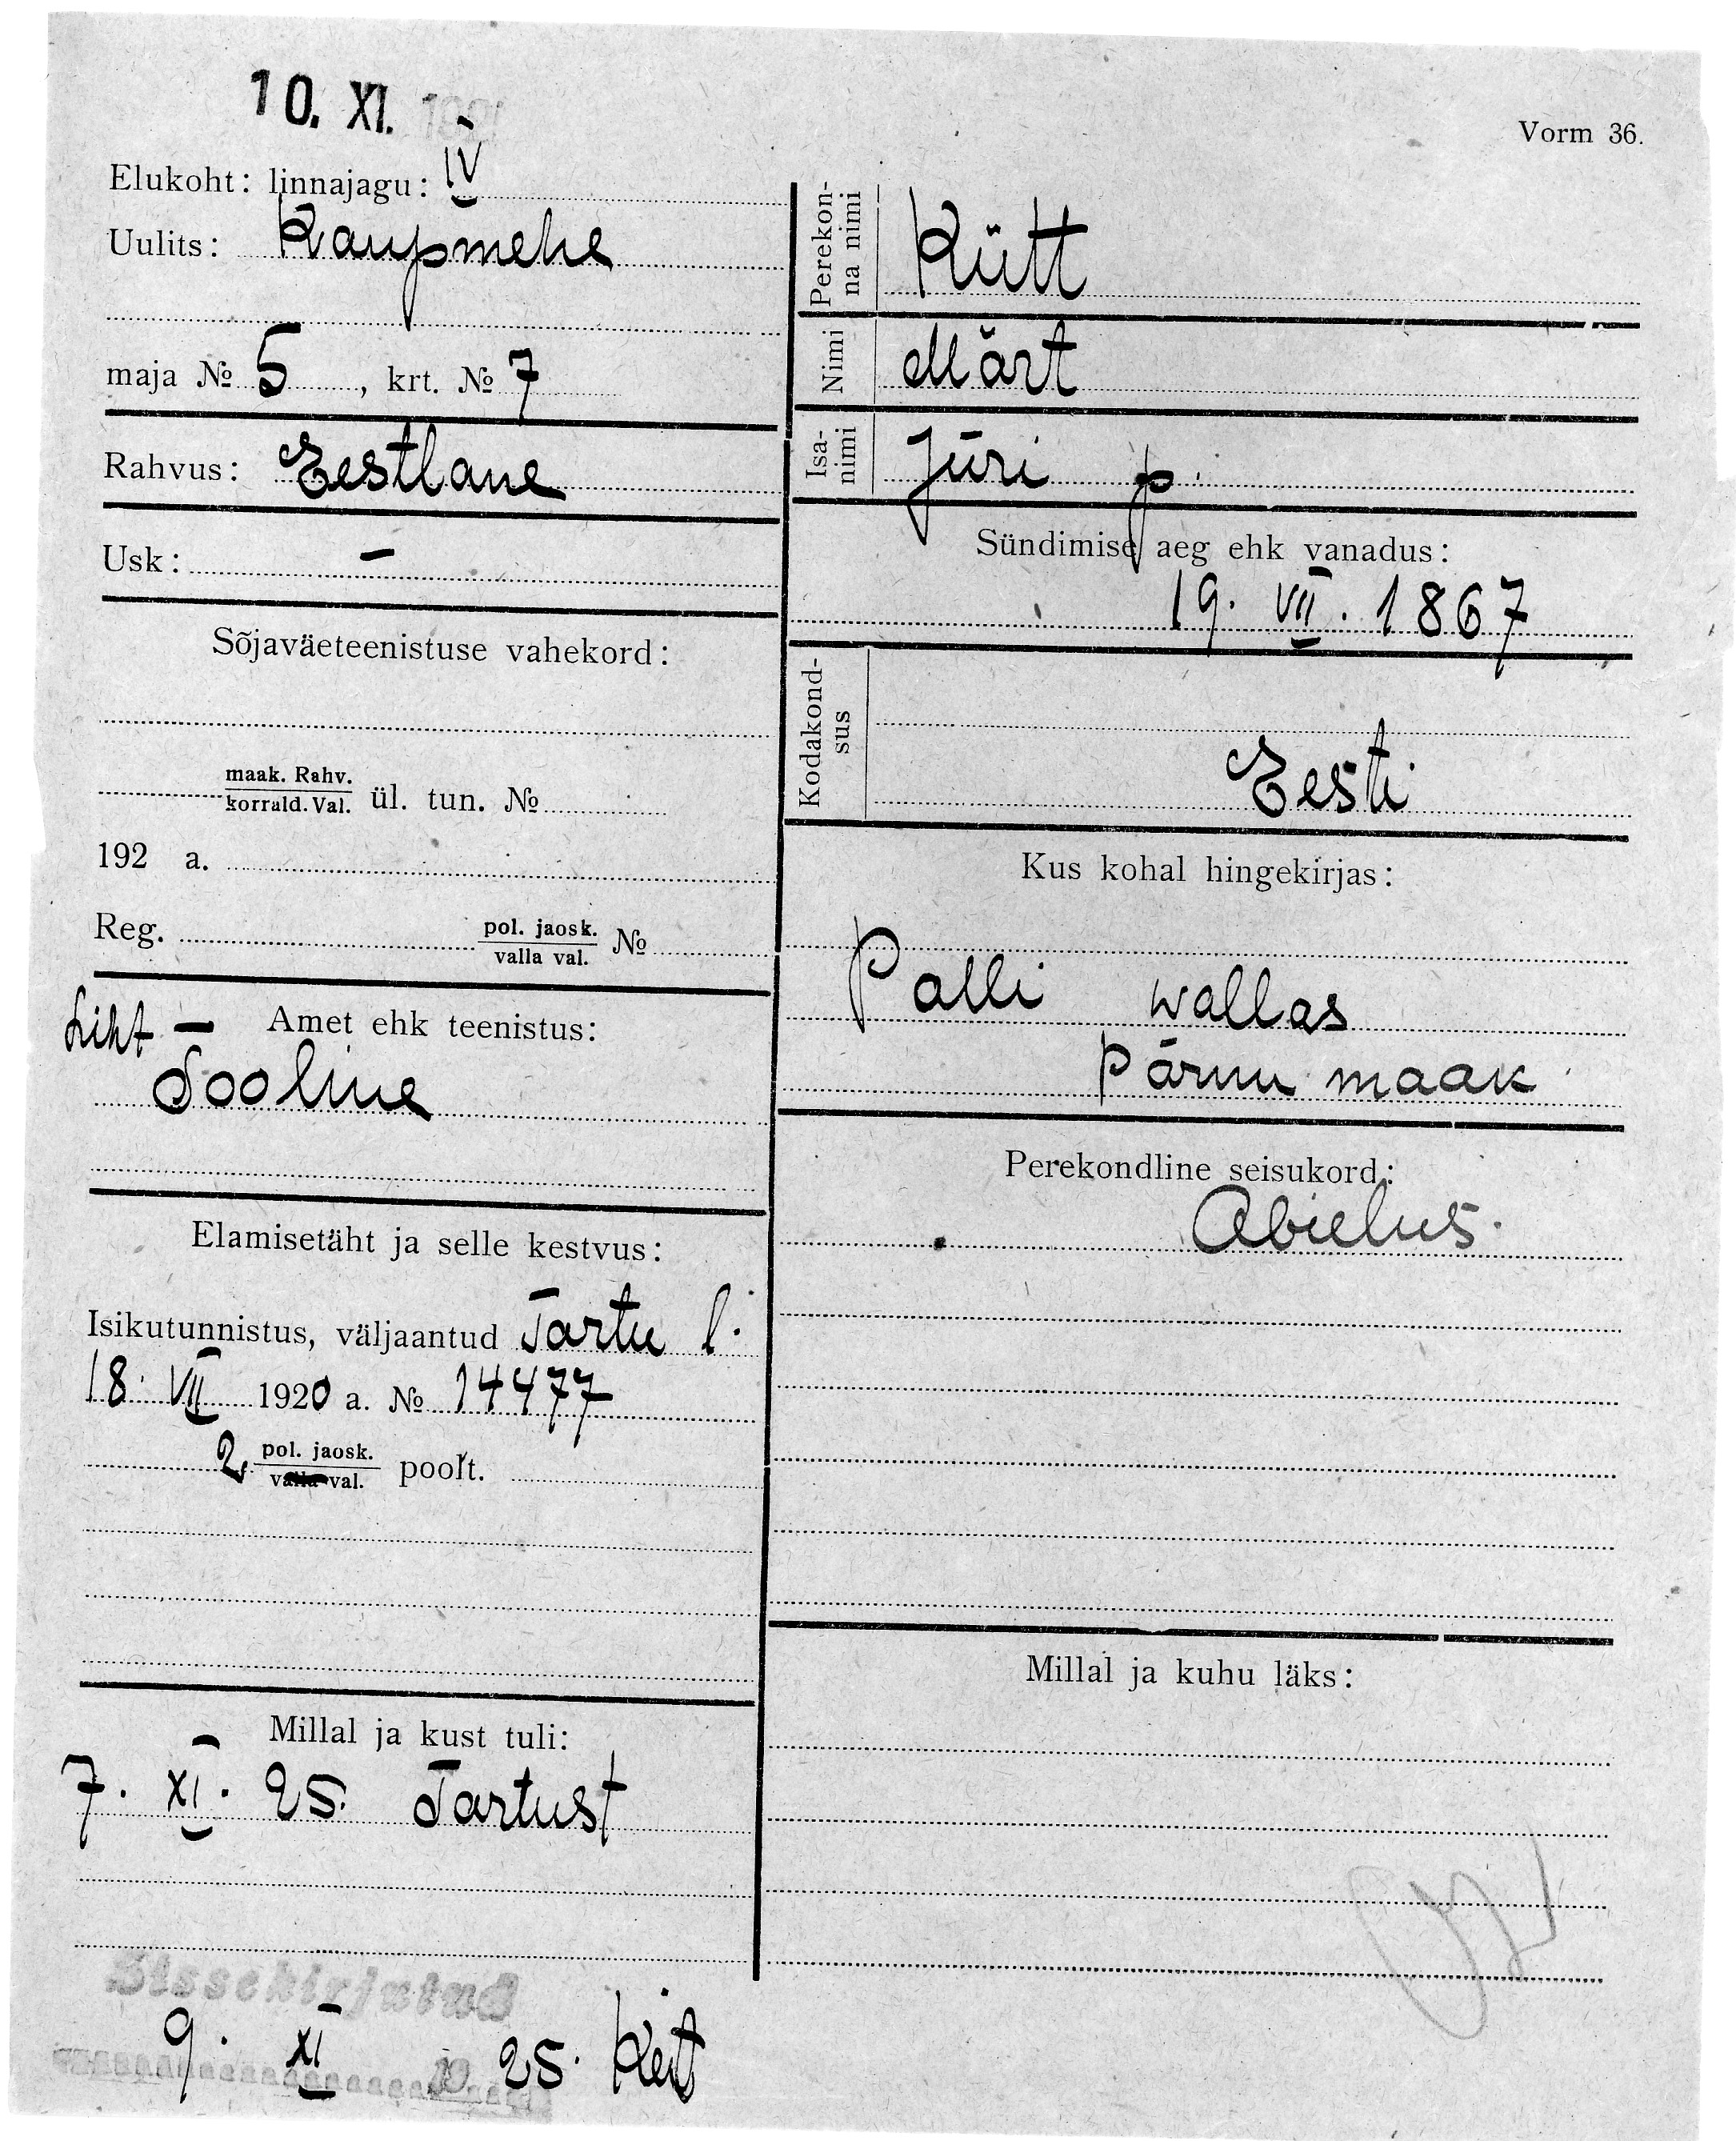 10. XI.
Vorm 36.
Elukoht: linnajagu: IV
Uulits: Kaupmehe
maja № 5, krt. № 7
Rahvus: Eestlane
Usk: –
Sõjaväeteenistuse vahekord:
maak. Rahv.
korrald. Val. ül. tun. №
192 a.
Reg. pol. jaosk.
valla val. №
Liht –
Amet ehk teenistus:
Tooline
Elamisetäht ja selle kestvus:
Isikutunnistus, väljaantud Tartu l.
18. VII 1920 a. № 14477
2. pol. jaosk.
valla val. poolt.
Millal ja kust tuli:
7. XI. 25. Tartust
Sissekirjutud
9. XI 25.
Perekon-
na nimi
Kütt
Nimi
Märt
Isa-
nimi
Jüri p.
Sündimise aeg ehk vanadus:
19. VII. 1867
Kodakond-
sus
Eesti
Kus kohal hingekirjas:
Palli wallas
Pärnu maak
Perekondline seisukord:
Abielus.
Millal ja kuhu läks: